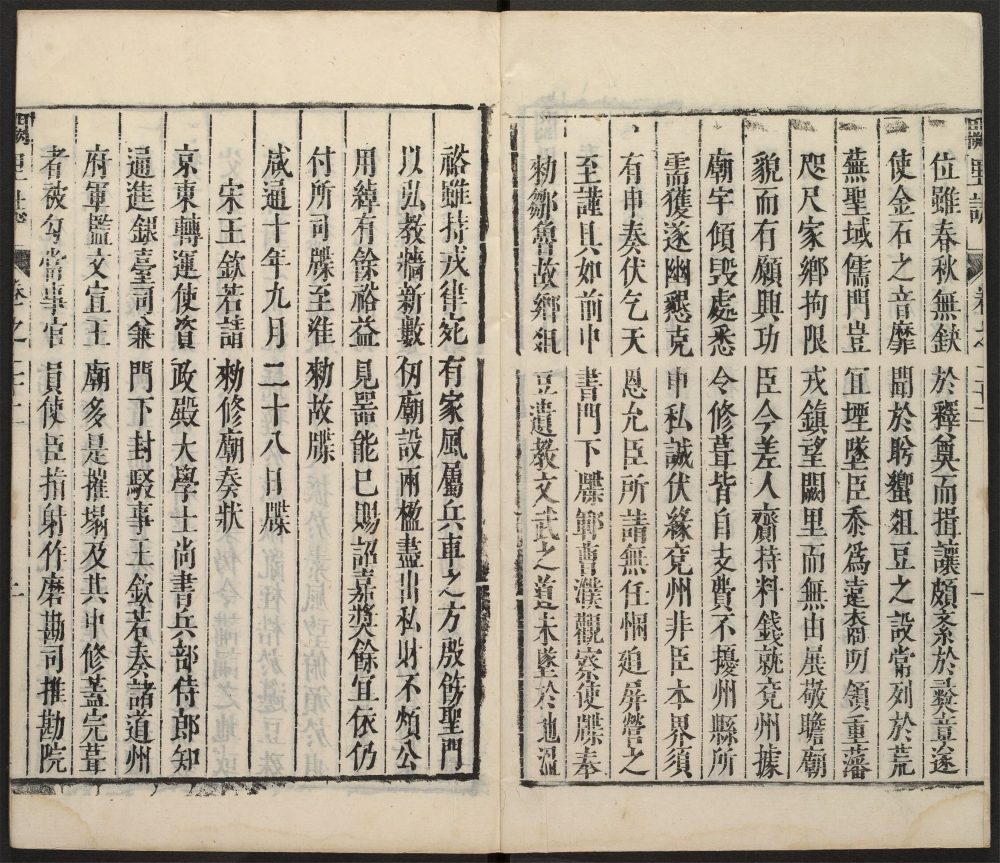 闕里誌 卷之二十二
位雖春秋無鈌於釋奠而揖讓頗紊於彝章遂
使金石之音靡聞於肸蠁俎豆之設常列於荒
蕪聖域儒門豈宜堙墜臣忝爲遠裔叨領重藩
咫尺家鄉拘限戎鎮望闕里而無由展敬瞻廟
貌而有願興功臣今差人齎持料錢就兖州據
廟宇傾毀處悉令修葺皆自支費不擾州縣所
需獲遂幽懇克申私誠伏緣兖州非臣本界須
有申奏伏乞天恩允臣所請無任悃迫屏營之
至謹具如前中書門下牒鄆曹濮觀察使牒奉
勑鄒魯故鄉俎豆遺教文武之道未墜於地溫
裕雖持戎律宛有家風屬兵車之方殷飭聖門
以弘教牆新數仞廟設兩楹盡出私財不煩公
用綽有餘裕益見器能已賜詔嘉奬餘宜依仍
付所司牒至准勑故牒
咸通十年九月二十八日牒
宋王欽若請勑修廟奏狀
京東轉運使資政殿大學士尚書兵部侍郎知
通進銀臺司兼門下封駁事王欽若奏諸道州
府軍監文宣王廟多是摧塌及其中修蓋完葺
者被勾當事官員使臣指射作磨勘司推勘院
闕里誌 卷之二十二